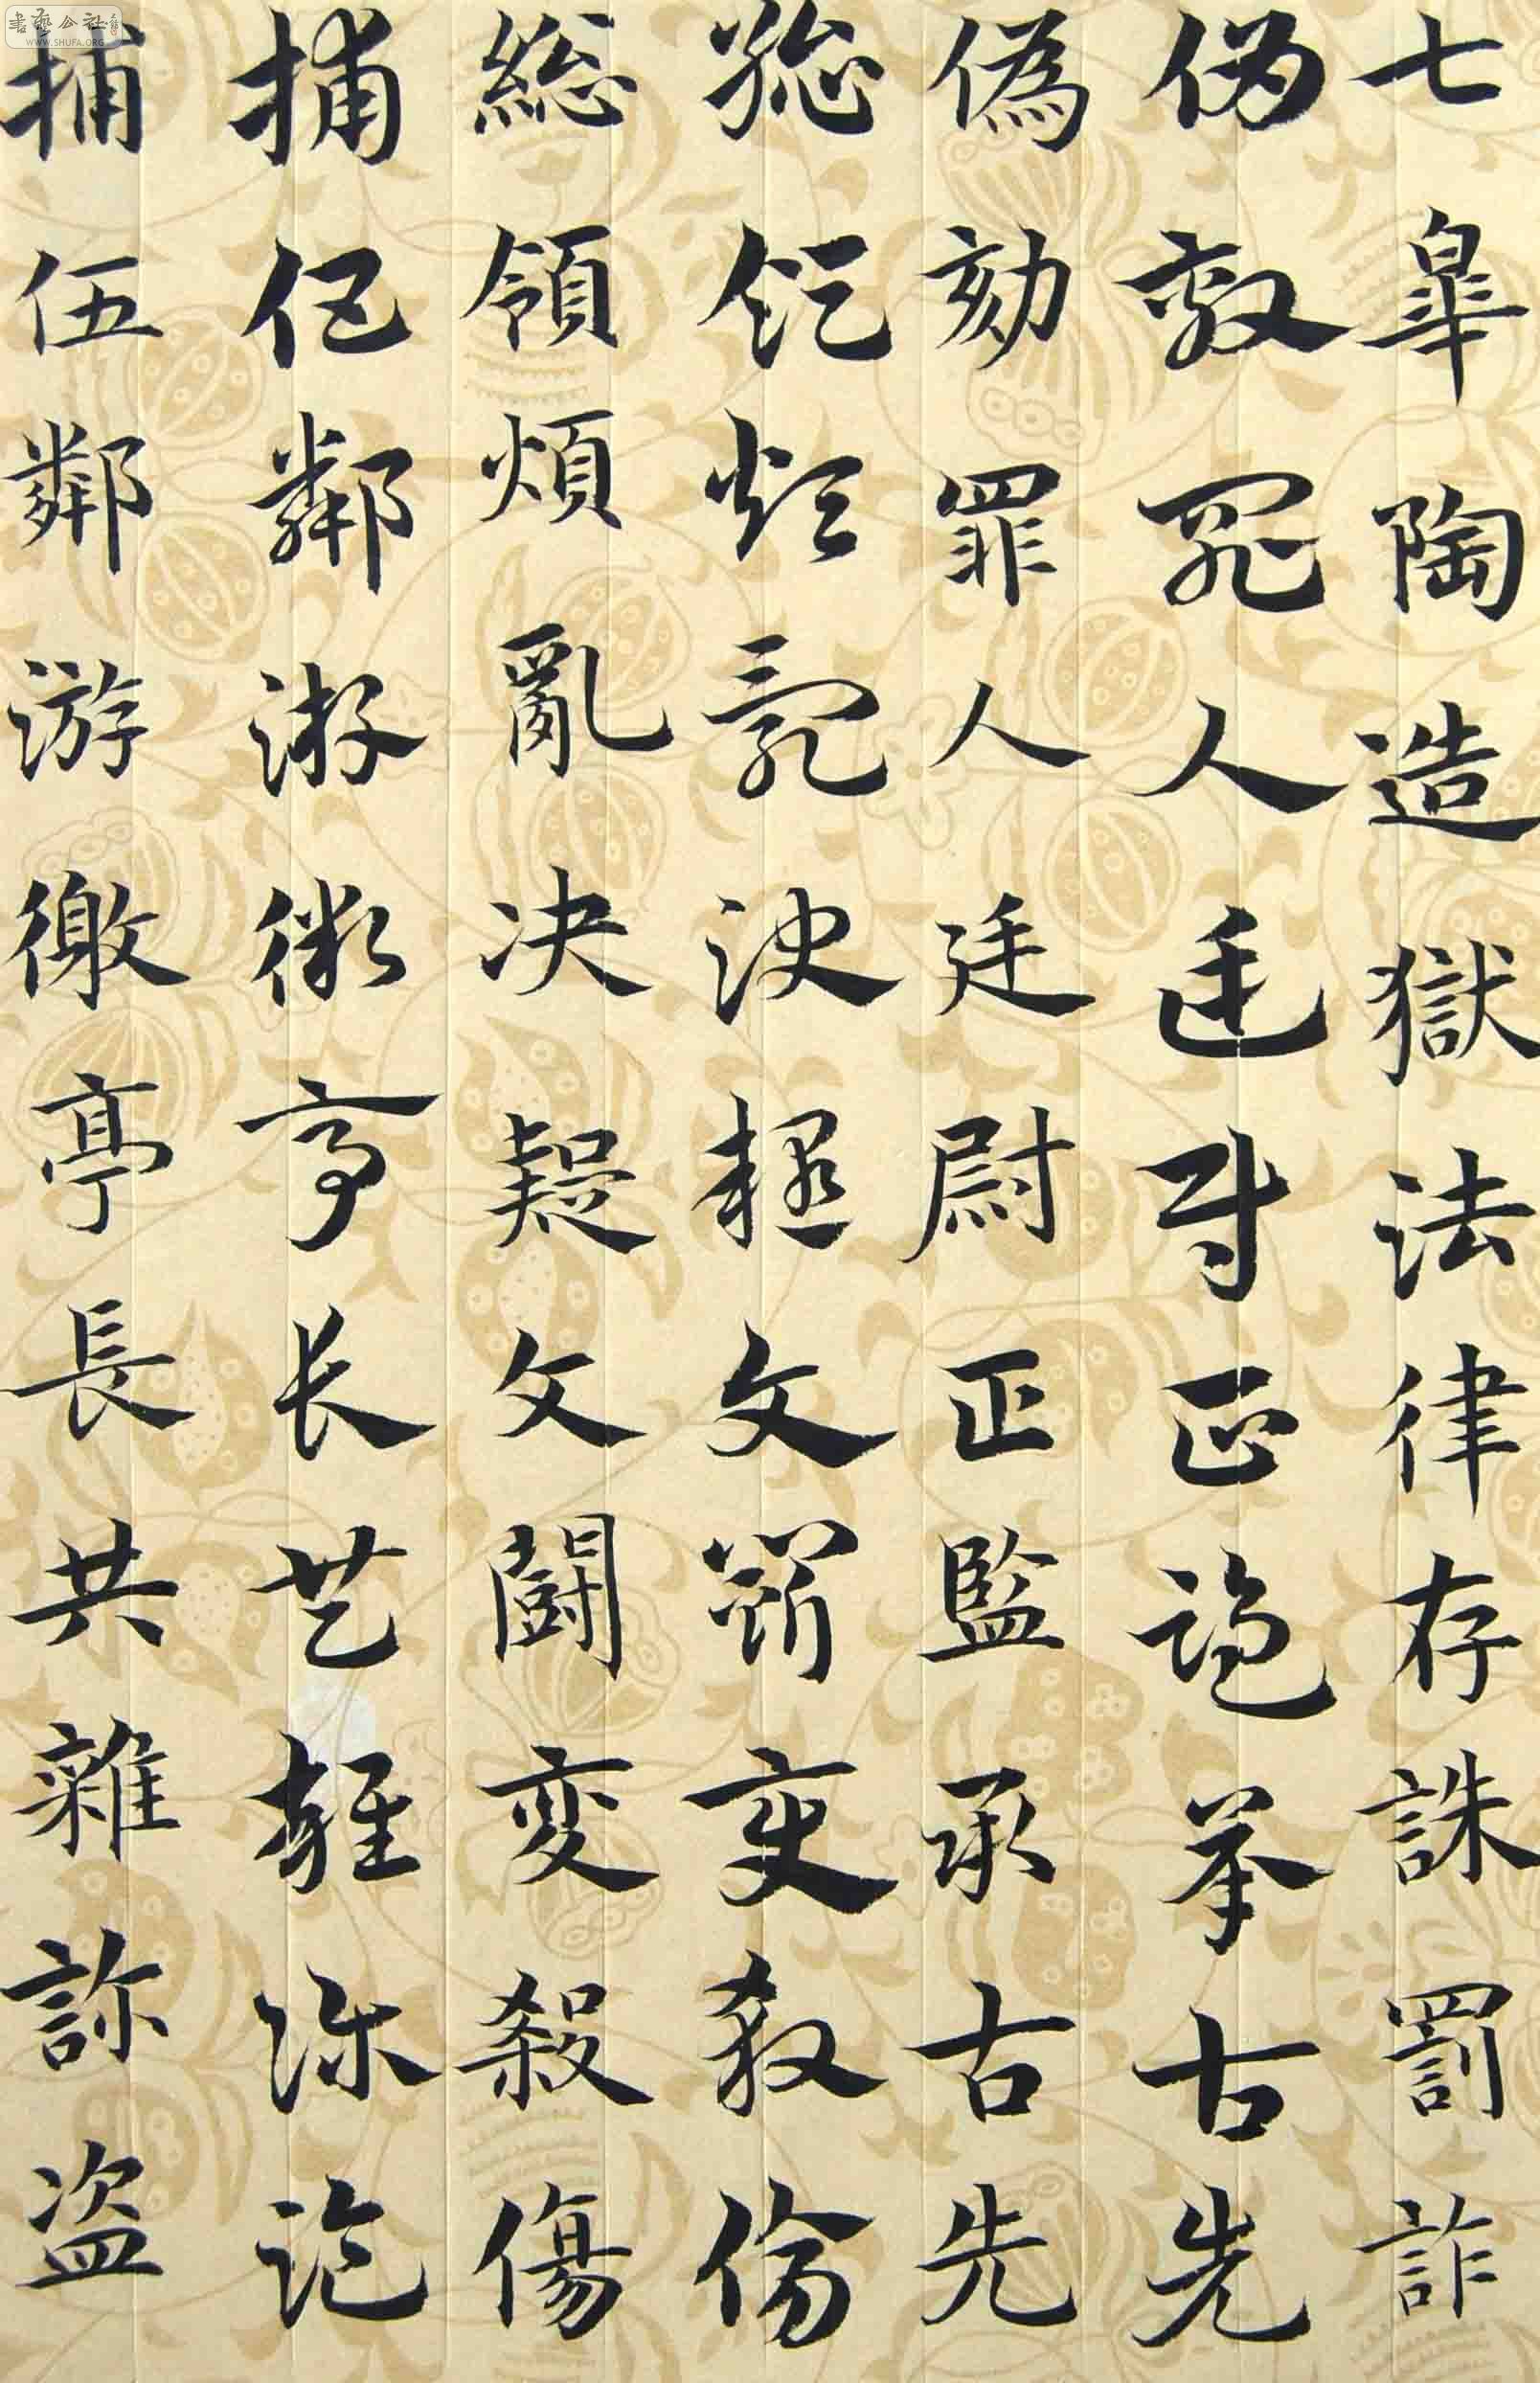 七皐陶造獄法律存誅罰詐
伪劾罪人廷尉正监承古先
偽劾罪人廷尉正監承古先
総領煩亂決疑文闘变殺傷
総領煩亂决疑文闘変殺傷
捕伍鄰游徼亭长共雜診盗
捕伍鄰游徼亭長共雜診盗
書藝公社
WWW.SHUFA.ORG